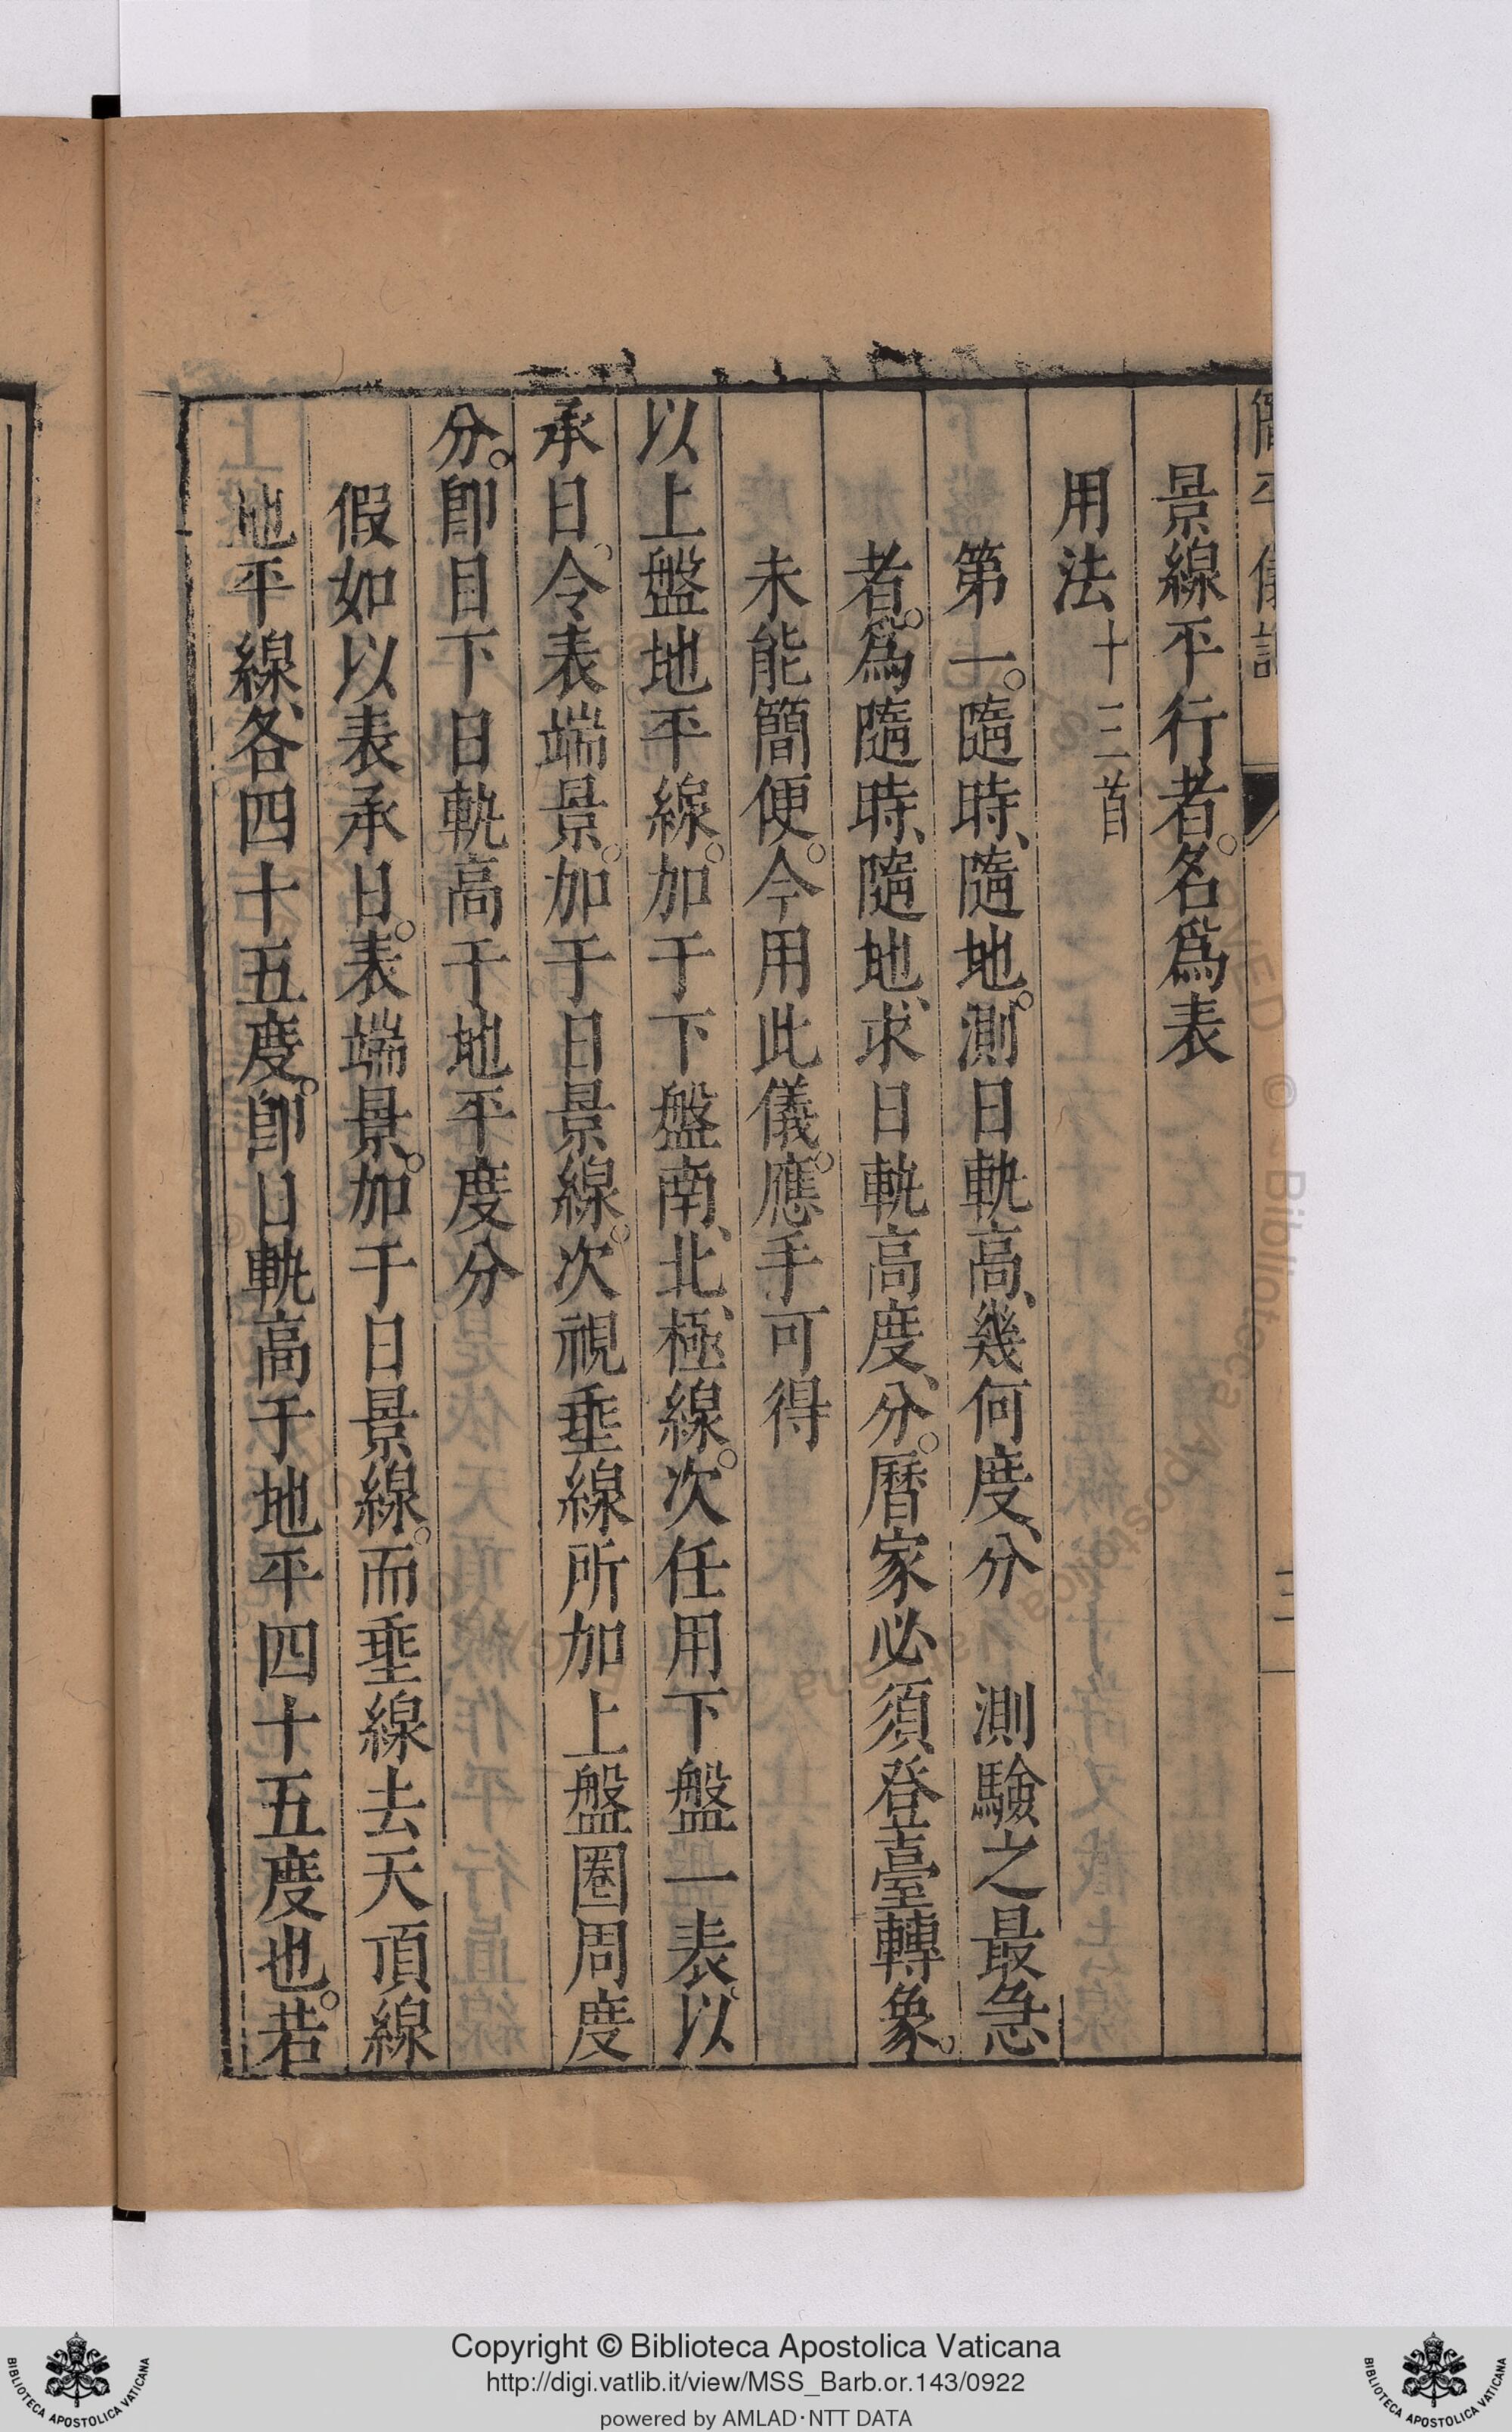 簡平儀說
三
景線平行者。名爲表
用法十三首
第一。隨時、隨地。測日軌高、幾何度、分　測驗之最急
者。爲隨時、隨地、求日軌高度、分。曆家必須登臺轉象。
未能簡便。今用此儀。應手可得
以上盤地平線。加于下盤南、北、極線。次任用下盤一表。以
承日。令表端景。加于日景線。次視垂線所加上盤圈周度
分。卽目下日軌高于地平度分
假如以表承日。表端景。加于日景線。而垂線去天頂線
地平線、各四十五度。卽日軌高于地平四十五度也。若
Copyright © Biblioteca Apostolica Vaticana
http://digi.vatlib.it/view/MSS_Barb.or.143/0922
powered by AMLAD·NTT DATA
BIBLIOTECA APOSTOLICA VATICANA
BIBLIOTECA APOSTOLICA VATICANA